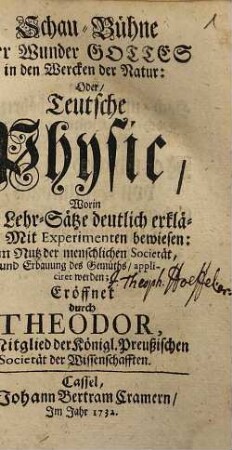 1
Schau-Bühne
er Wunder GOTTES
in den Wercken der Natur:
Oder/
Teutsche
Physic,
Worin
Lehr-Sätze deutlich erklä-
Mit Experimenten bewiesen:
um Nutz der menschlichen Societät,
und Erbauung des Gemüths/ appli-
ciret werden:
Theoph. Hoeffeker.
Eröffnet
durch
THEODOR,
Mitglied der Königl. Preußischen
Societät der Wissenschafften.
Cassel,
Johann Bertram Cramern/
Im Jahr 1732.